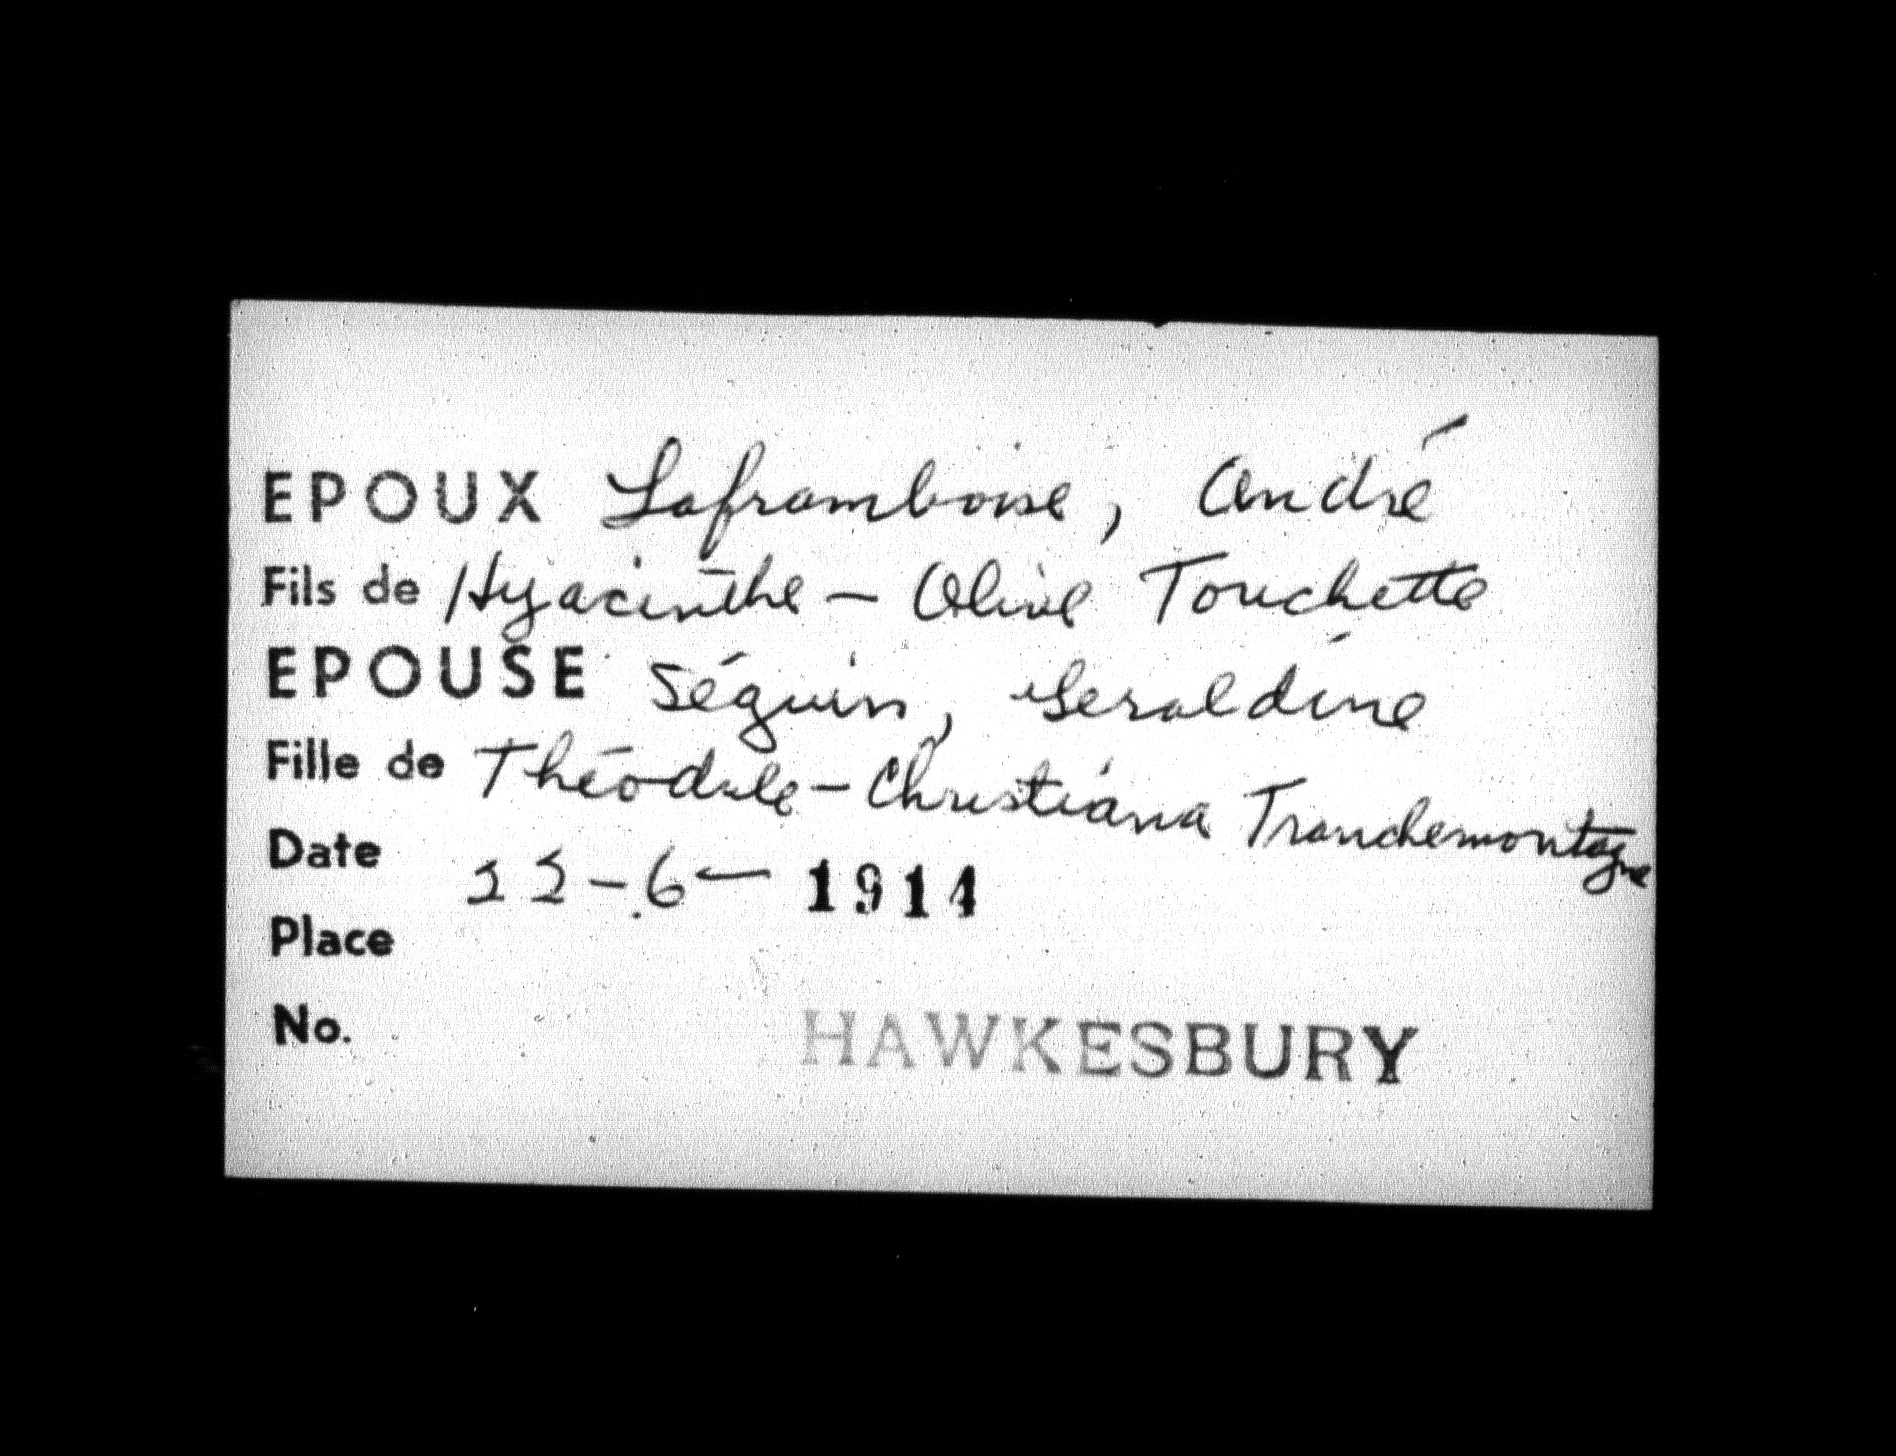 EPOUX Laframboise, André
Fils de Hyacinthe – Olive Touchette
EPOUSE Séguin, Geraldine
Fille de Théodule – Christiana Tranchemontagne
Date 22 – 6 – 1914
Place
No.
HAWKESBURY